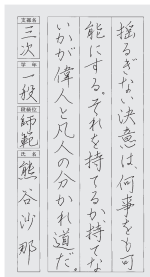 揺るぎない決意は、何事をも可
能にする。それを持てるか持てな
いかが偉人と凡人の分かれ道だ。
支部名
三次
学年
一般
段級位
師範
氏名
熊谷沙那